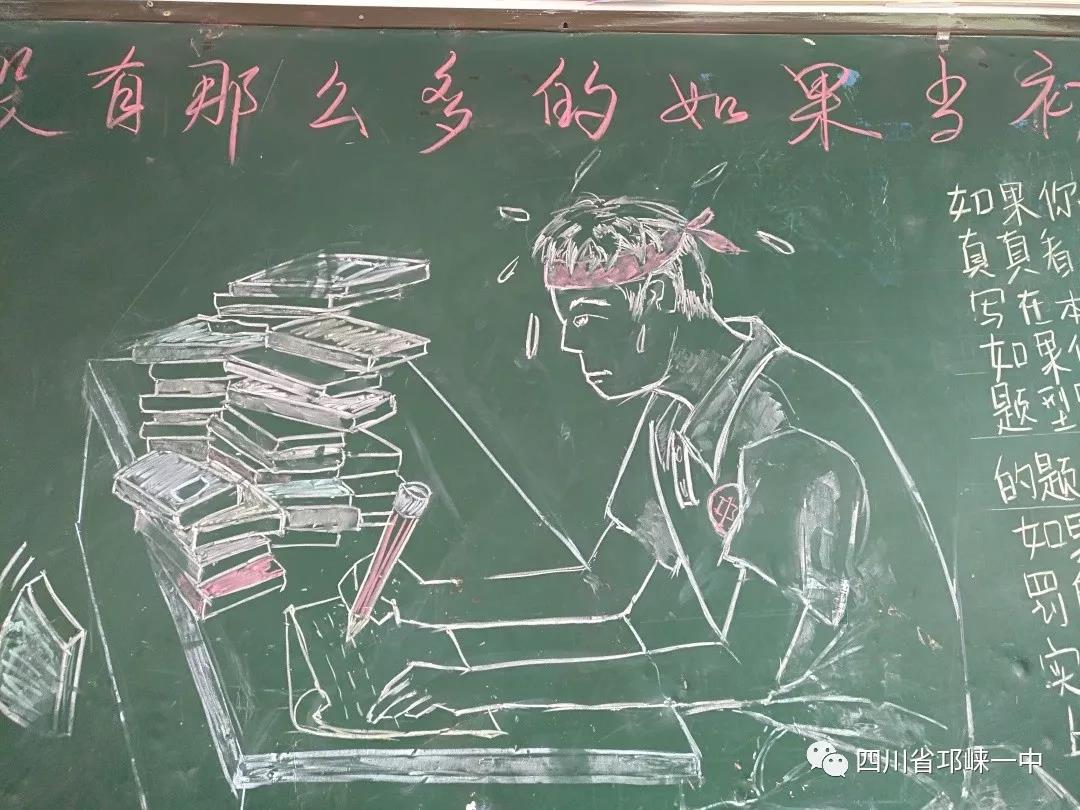 没有那么多的如果当初
如果你
真真看
写在本
如果你
题型
的题
如果
罚
实
中
四川省邛崃一中